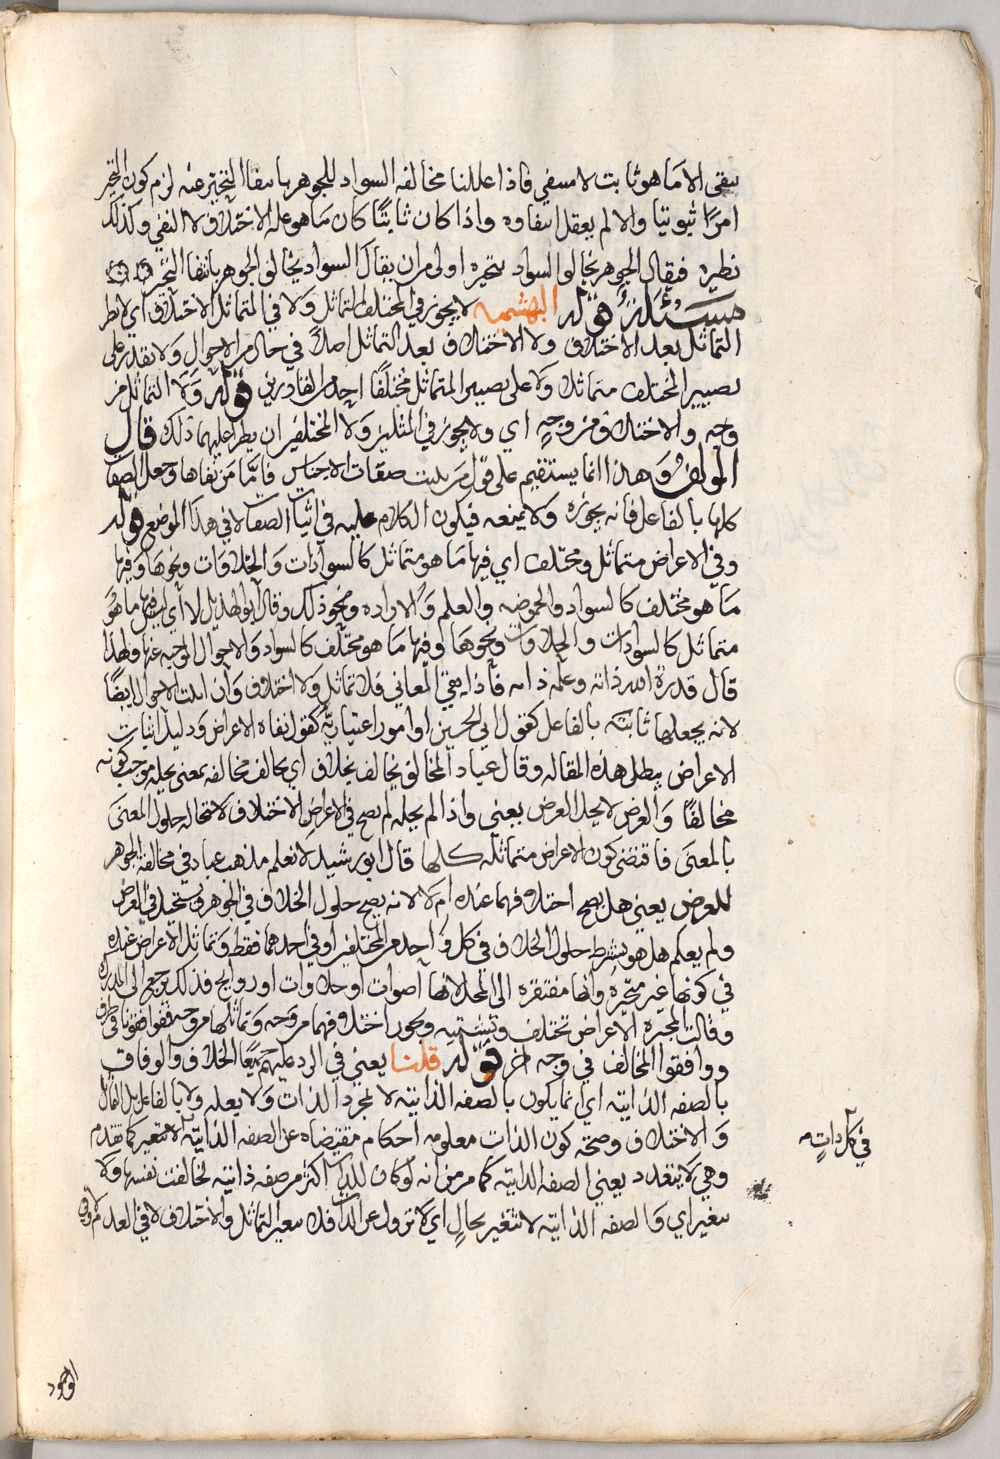 يبقى الا ما هو ثابت لا منتفي فاذا عللنا مخالفة السواد للجوهر بانتفا التحيز عنه لزم كون التحيز
امرًا ثبوتيا والا لم يعقل انتفاوه واذا كان ثابتًا كان ما هو علة الاختلاف لا النفي وكذلك
نظيره فيقال الجوهر يخالف السواد بتحيزه اولى من ان يقال السواد يخالف الجوهر بانتفا التحيز
مسئلة قوله البهشمية لا يجوز في المختلف التماثل ولا في المتماثل الاختلاف اي لا يطر
التماثل بعد الاختلاف ولا الاختلاف بعد التماثل اصلا في حال من الاحوال ولا يقدر على
تصيير المختلف متماثلا ولا على تصيير المتماثل مختلفًا احد من القادرين قوله ولا التماثل من
وجه والاختلاف من وجه اي ولا يجوز في المثلين ولا المختلفين ان يطرا عليهما ذلك قال
المولف وهذا انما يستقيم على قول من يثبت صفات الاجناس فاما من نفاها وجعل الصفات
كلها بالفاعل فانه يجوزه ولا يمنعه فيكون الكلام عليه في اثبات الصفات لا في هذا الموضع قوله
وفي الاعراض متماثل ومختلف اي فيها ما هو متماثل كالسوادات والحلاوات ونحوها وفيها
ما هو مختلف كالسواد والحموضه والعلم والاراده ونحو ذلك وقال ابو الهذيل لا اي ليس فيها ما هو
متماثل كالسوادات والحلاوات ونحوها وفيها ما هو مختلف كالسواد والاحوال الموجبه عنها ولهذا
قال قدرة الله ذاته وعلمه ذاته فاذا نفى المعاني فلا تماثل ولا اختلاف وان اثبت الاحوال ايضًا
لانه يجعلها ثابتة بالفاعل كقول ابي الحسين او امورا اعتباريه كقول نفاه الاعراض ودليل اثبات
الاعراض يبطل هذه المقاله وقال عباد المخالف يخالف بخلاف اي يخالف مخالفه بمعنى يحله يوجب كونه
مخالفًا والعرض لا يحل العرض بمعنى واذا لم يحله لم يصح في الاعراض الاختلاف لاستحاله حلول المعنى
بالمعنى فاقتضى كون الاعراض متماثله كلها قال ابو رشيد لا نعلم مذهب عباد في مخالفه الجوهر
للعرض يعني هل يصح اختلافهما عنده ام لا لانه يصح حلول الخلاف في الجوهر ويستحيل في العرض
ولم يعلم هل هو يشترط حلول الخلاف في كل واحد من المختلفين او في احدهما فقط وتماثل الاعراض عنده
في كونها غير متحيزه وانها مفتقره الى المحل لانها اصوات او حلاوات او روايح فذلك يرجع الى المدرك
وقالت المجبرة الاعراض تختلف وتشتبه ويجوز اختلافهما من وجه وتماثلهما من وجه فقد وافقونا في طرف
ووافقوا المخالف في وجه اخر قوله قلنا يعني في الرد عليهم جميعًا الخلاف والوفاق
بالصفه الذاتيه اي انما يكون بالصفه الذاتية لا لمجرد الذات ولا بعله ولا بالفاعل بل التماثل
والاختلاف وصحه كون الذات معلومه احكام مقتضاه عن الصفه الذاتية لا تتغير كما تقدم
وهي لا يتعدد يعني الصفه الذاتية كما مر من انه لو كان للذات اكثر من صفه ذاتية لخالفت نفسها ولا
تتغير اي والصفه الذاتيه لا تتغير بحال اي لا تزول عن الذات فلا يتغير التماثل والاختلاف لا في العدم ولا في
في كل ذات
الوجود